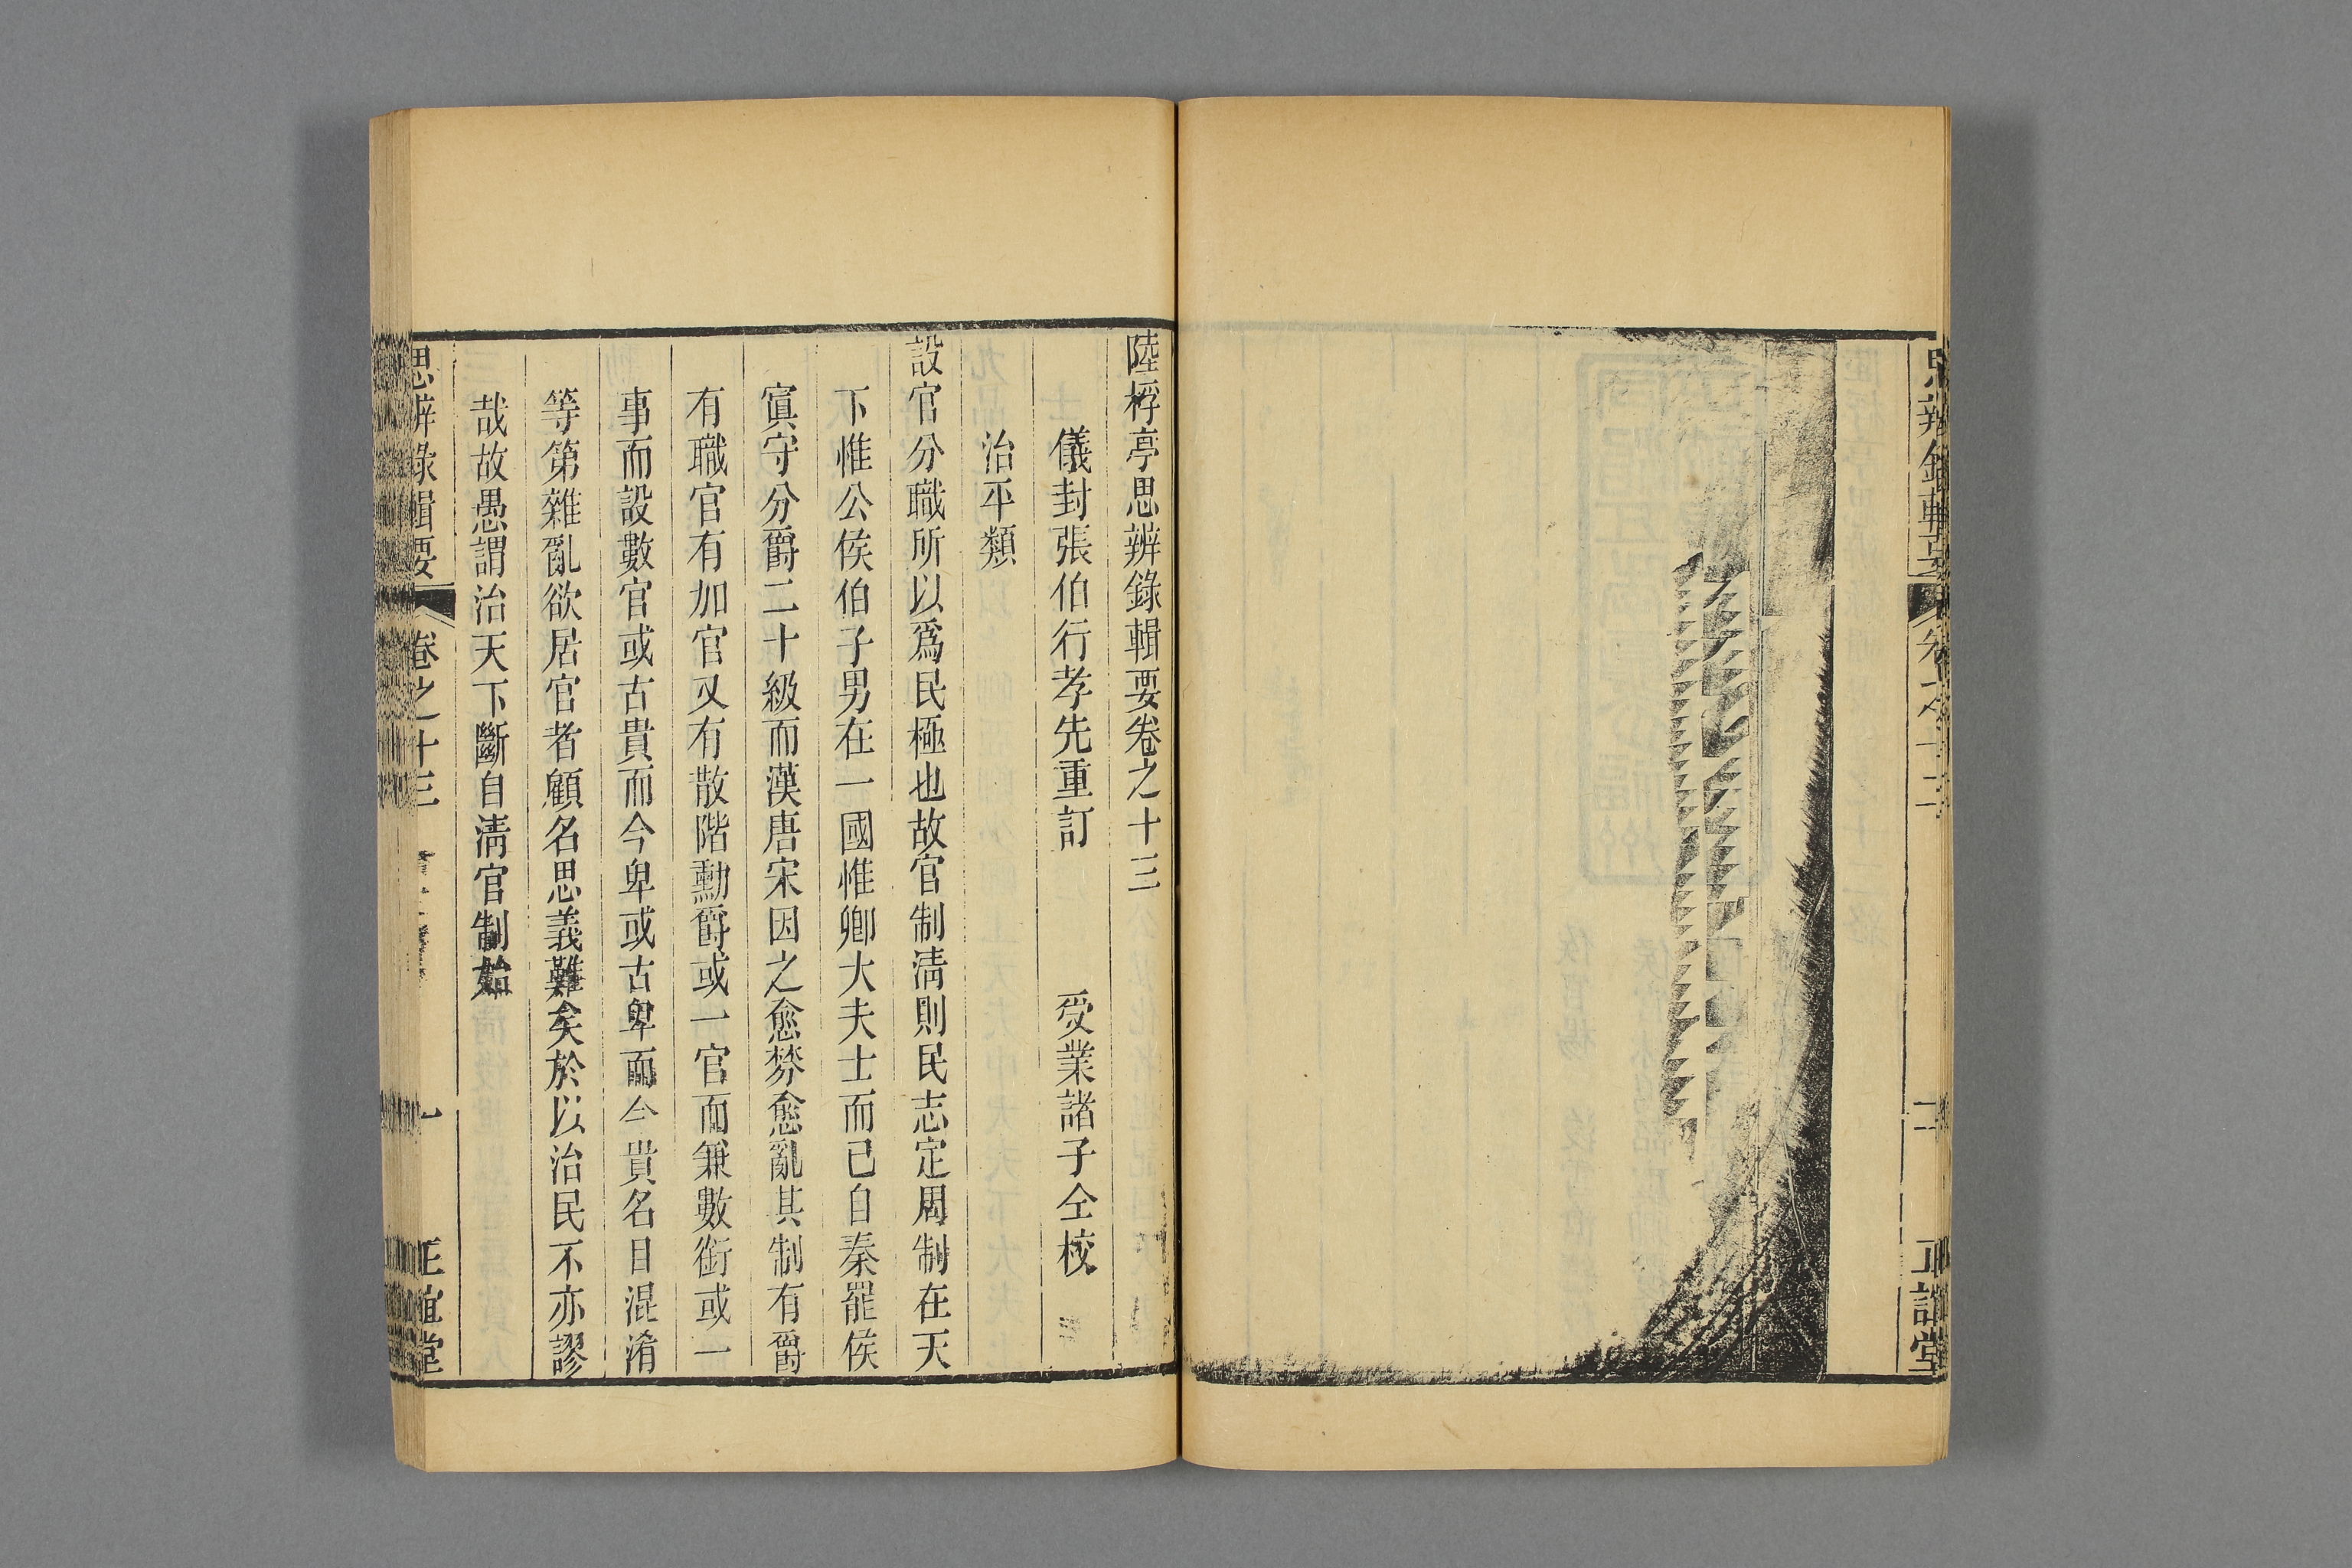 陸桴亭思辨錄輯要卷之十三
儀封張伯行孝先重訂 受業諸子仝校
治平類
設官分職所以爲民極也故官制淸則民志定周制在天
下惟公侯伯子男在一國惟卿大夫士而已自秦罷侯
寘守分爵二十級而漢唐宋因之愈棼愈亂其制有爵
有職官有加官又有散階勳爵或一官而兼數銜或一
事而設數官或古貴而今卑或古卑而今貴名目混淆
等第雜亂欲居官者顧名思義難矣於以治民不亦謬
哉故愚謂治天下斷自淸官制始
思辨錄輯要 卷之十三 一 正誼堂